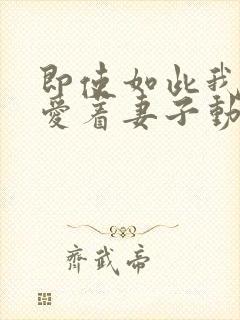 即使如此我
爱着妻子動
齊武帝